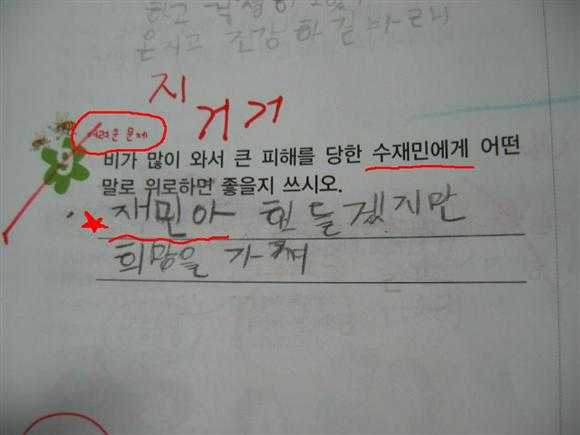 온지고 조강 하길 바라니
지 거거
어려운 문제
9
비가 많이 와서 큰 피해를 당한 수재민에게 어떤
말로 위로하면 좋을지 쓰시오.
재민아 힌들겠지만
희망을 가져